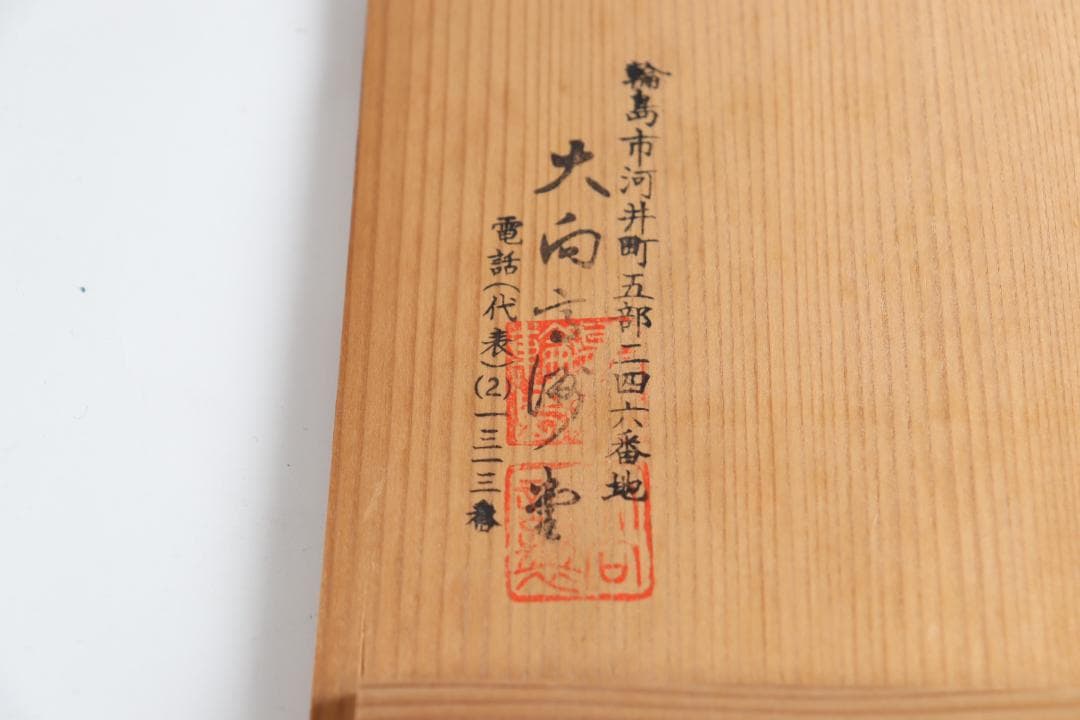 輪島市河井町五部二四六番地
大向高洲堂
電話(代表)(2)一三一三番